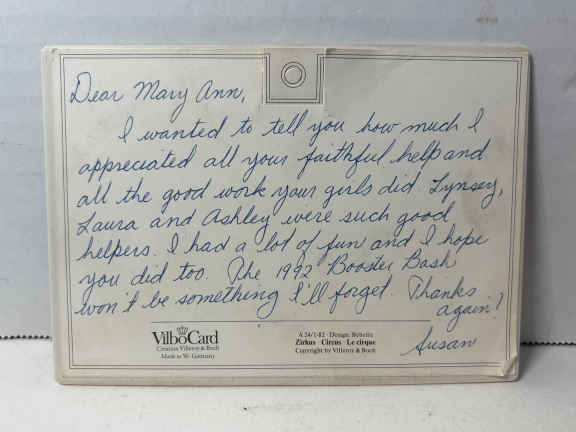 Dear Mary Ann,
I wanted to tell you how much I
appreciated all your faithful help and
all the good work your girls did. Lynsey,
Laura and Ashley were such good
helpers. I had a lot of fun and I hope
you did too. The 1992 Booster Bash
won't be something I'll forget. Thanks
again!
Susan
VilboCard
Creation Villeroy & Boch
Made in W. Germany
Zirkus · Circus · Le cirque
Copyright by Villeroy & Boch